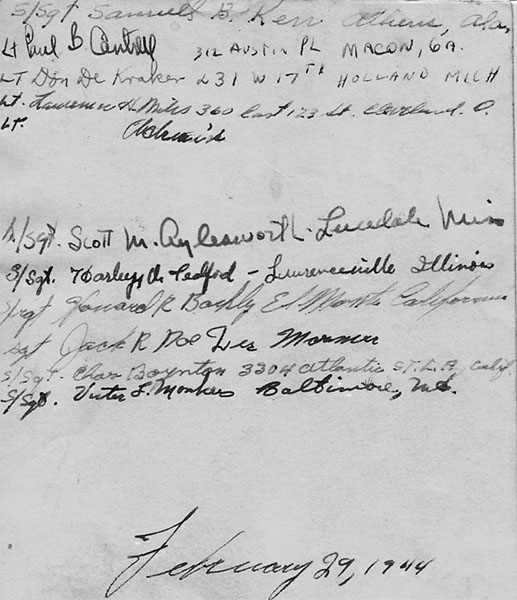 S/Sgt Samuel B. Kerr Athens, Ala.
Lt Paul B Cantrell 312 AUSTIN PL MACON, GA.
LT Don De Kraker 231 W 17TH HOLLAND MICH
Lt. Lawrence H. Miles 360 East 123 St. Cleveland. O.
Lt.
S/Sgt. Scott M. Aylesworth - Lucedale Miss
S/Sgt. Harley Pedford - Lawrenceville Illinois
S/Sgt Howard R El Monte California
Sgt Jack R Doe
S/Sgt. Chas Boynton 3304 Atlantic ST. L.A. Calif.
S/Sgt. Victor L. Monkers Baltimore, Md.
February 29, 1944